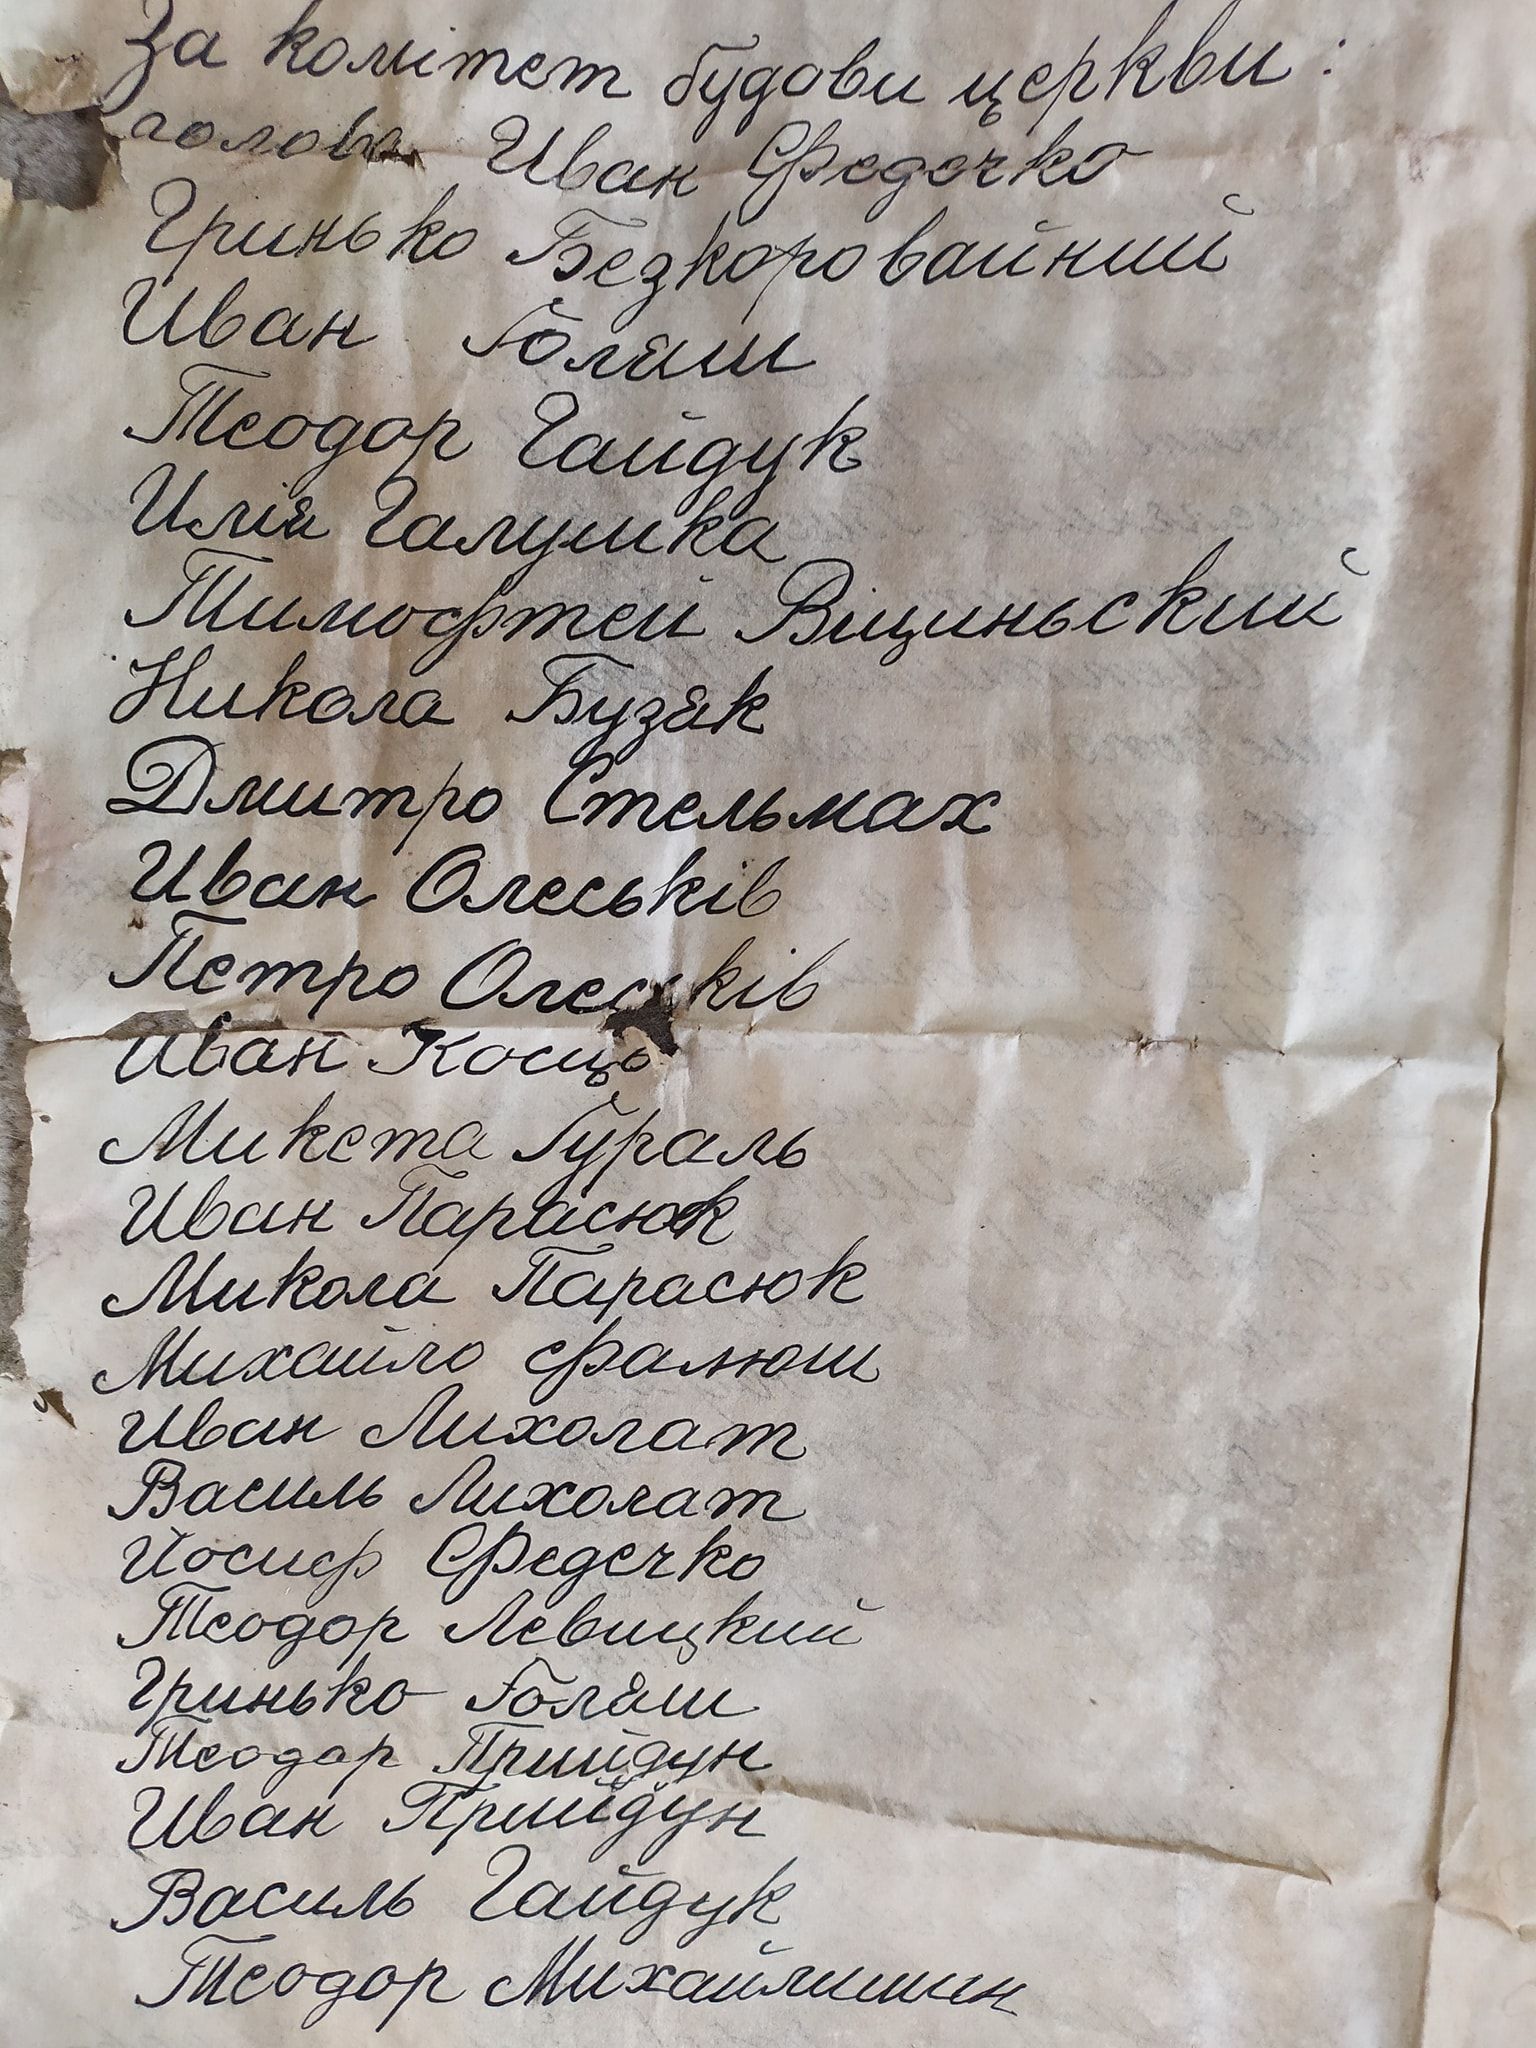 За комітет будови церкви:
голова Иван Федечко
Гринько Безкоровайний
Иван Ґоляш
Теодор Гайдук
Илія Галушка
Тимофтей Віциньский
Никола Бузяк
Дмитро Стельмах
Иван Олеськів
Петро Олеськів
Иван Косць
Микета Ґураль
Иван Парасюк
Микола Парасюк
Михайло Фалюш
Иван Лихолат
Василь Лихолат
Йосиф Федечко
Теодор Левицкий
Гринько Ґоляш
Теодор Прийдун
Иван Прийдун
Василь Гайдук
Теодор Михайлишин